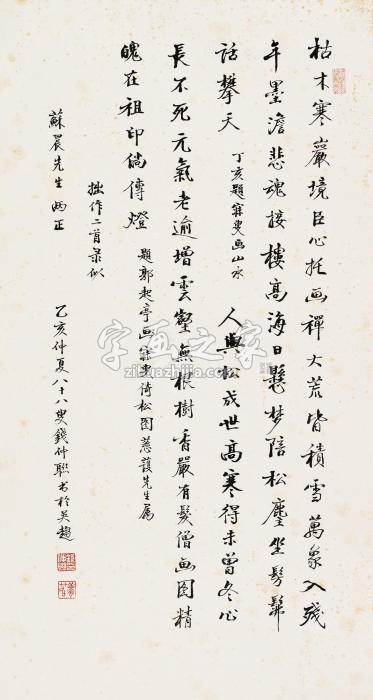 枯木寒巖境臣心托画禪大荒皆積雪萬象入殘
年墨澹悲魂接樓高海日懸梦陪松麈坐髣髴
話攀天 丁亥題寐叟画山水 人與松成世高寒得未曾冬心
長不死元氣老逾增雲壑無根樹香嚴有髮僧画图精
魄在祖印倘傳燈 題郭起亭画寐叟倚松图慈護先生属
拙作二首录似
蘇晨先生两正
乙亥仲夏八十八叟錢仲聯书於吴趨
字画之家